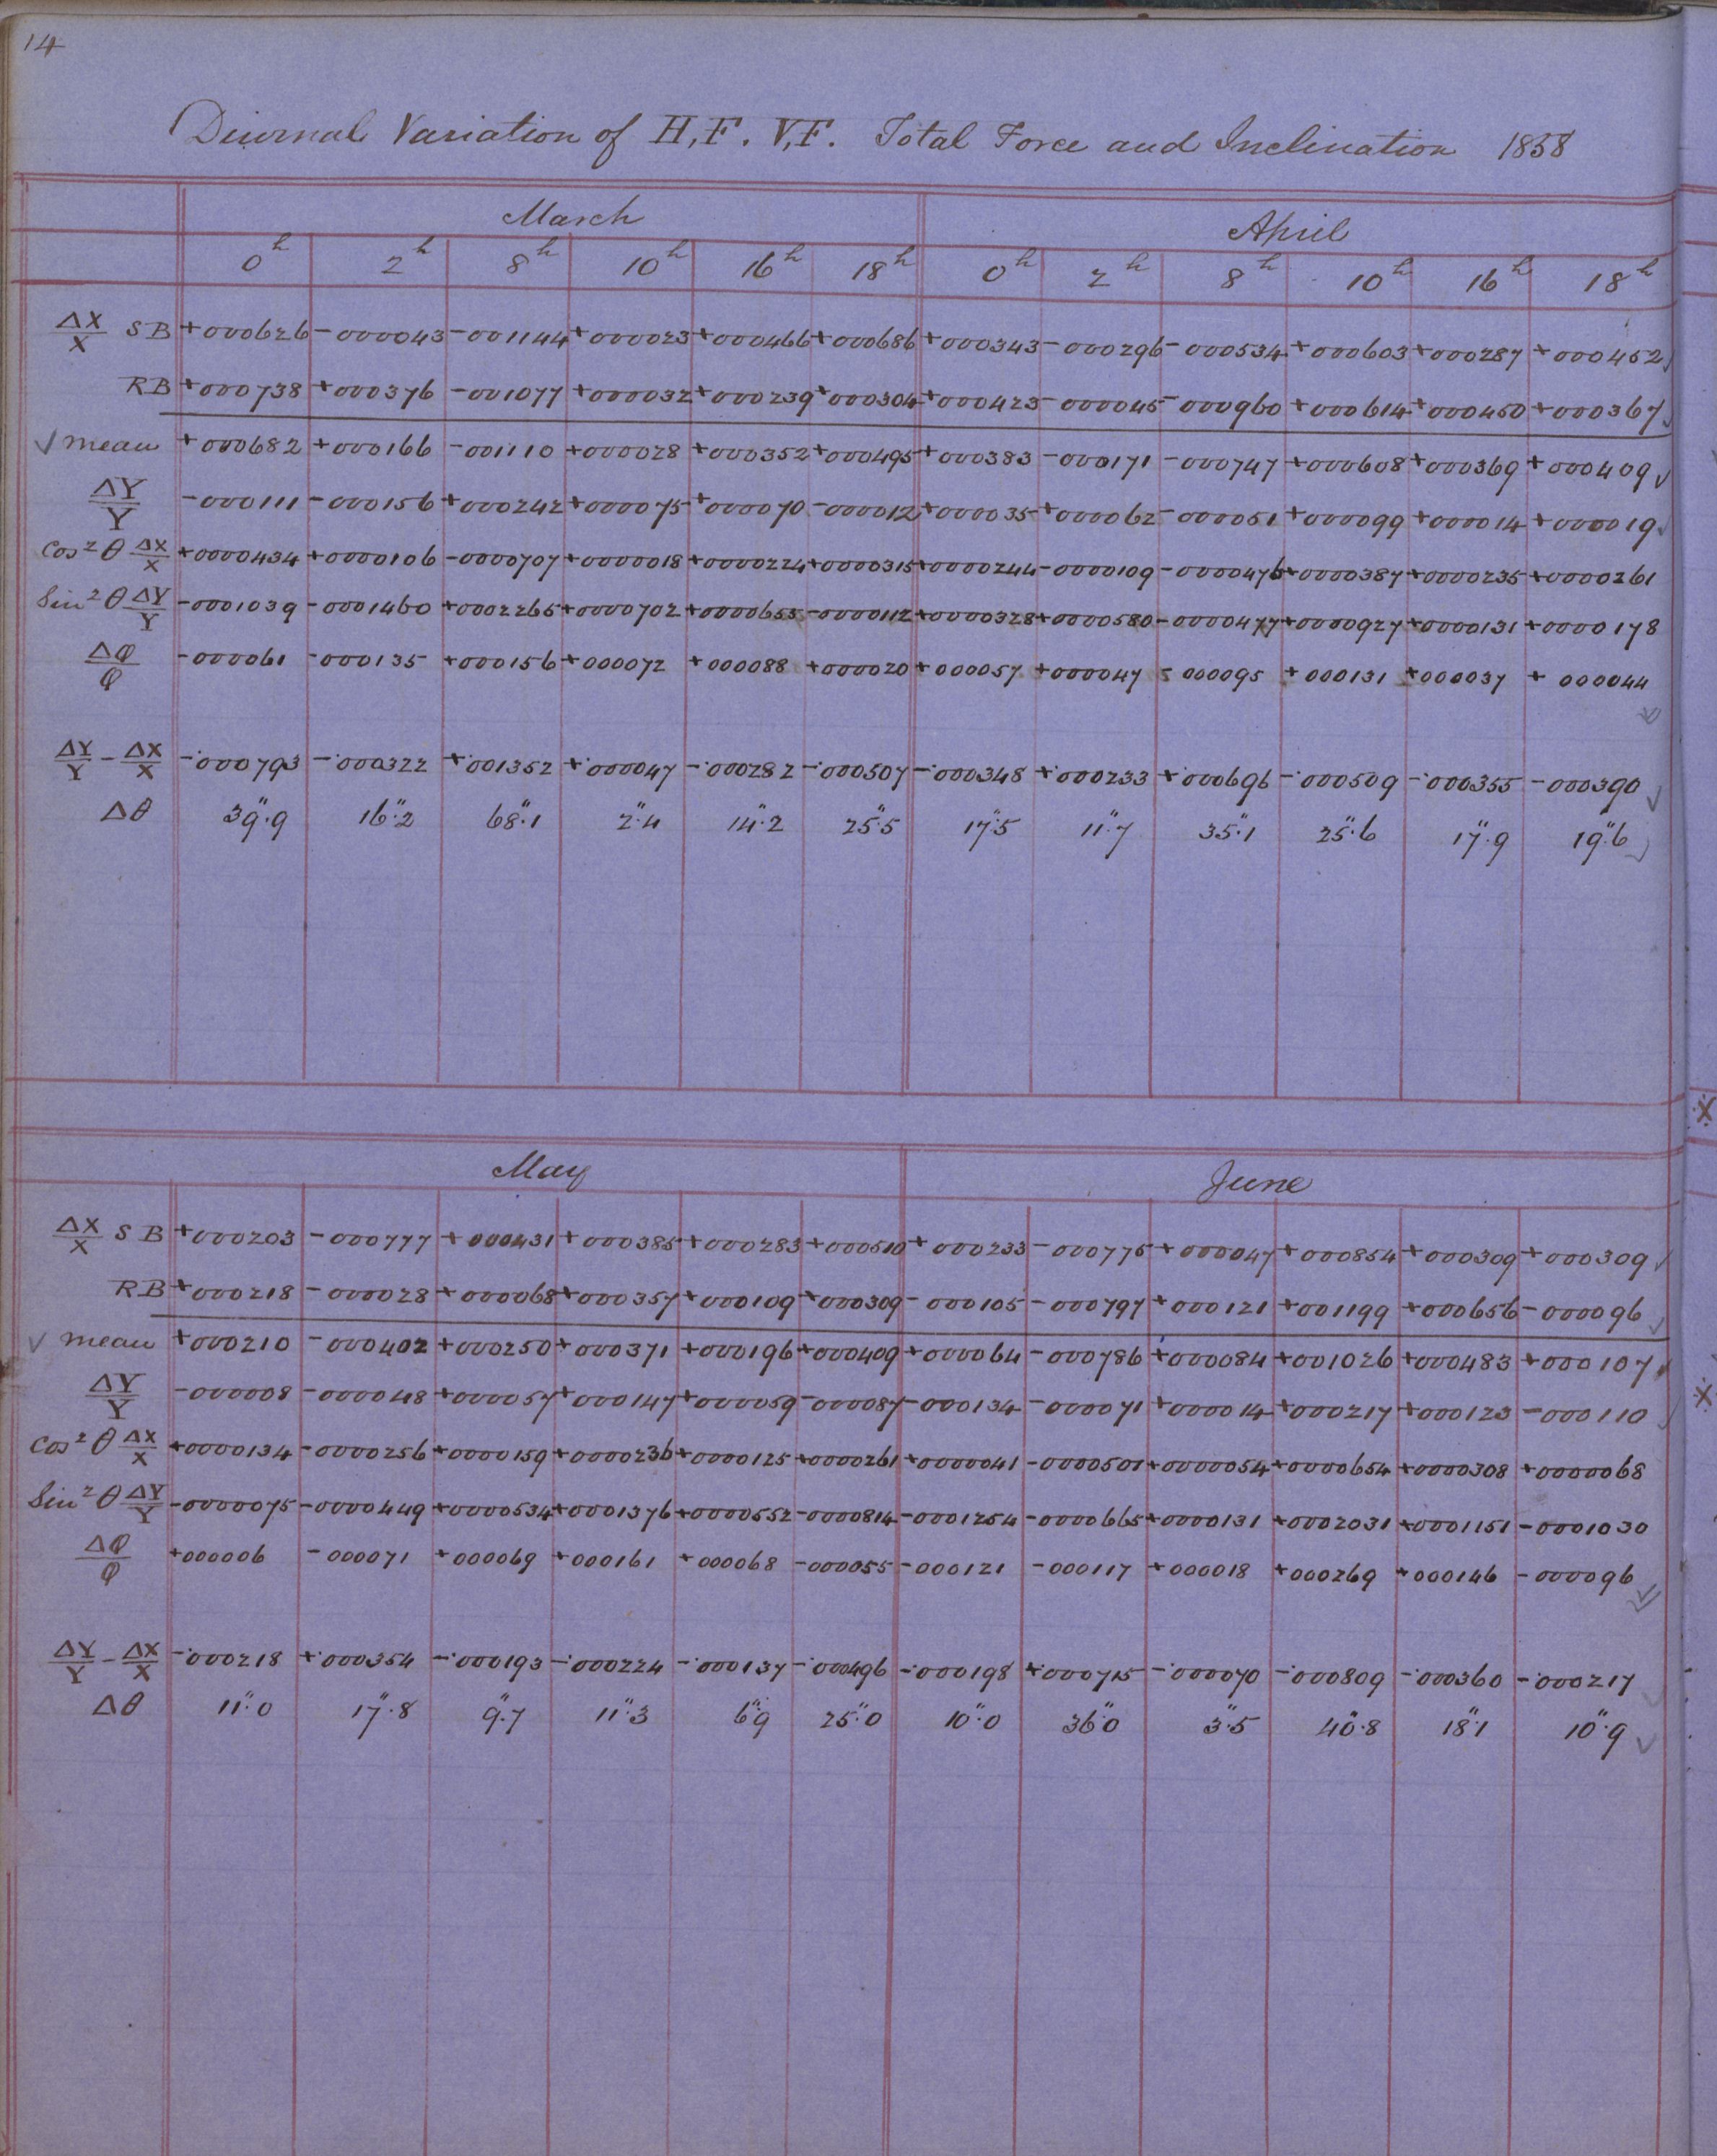 14
Diurnal Variation of H,F. V,F. Total Force and Inclination 1858
March April
0h 2h 8h 10h 16h 18h 0h 2h 8h 10h 16h 18h
ΔX/X SB +000626 -000043 -001144 +000023 +000466 +000686 +000343 -000296 -000534 +000603 +000287 +000452
RB +000738 +000376 -001077 +000032 +000239 +000304 +000423 -000045 -000960 +000614 +000450 +000367
✓ mean +000682 +000166 -001110 +000028 +000352 +000495 +000383 -000171 -000747 +000608 +000369 +000409 ✓
ΔY/Y -000111 -000156 +000242 +000075 +000070 -000012 +000035 +000062 -000051 +000099 +000014 +000019
Cos²θ ΔX/X +0000434 +0000106 -0000707 +0000018 +0000224 +0000315 +0000244 -0000109 -0000476 +0000387 +0000235 +0000261
Sin²θ ΔY/Y -0001039 -0001460 +0002265 +0000702 +0000655 -0000112 +0000328 +0000580 -0000477 +0000927 +0000131 +0000178
Δφ/φ -000061 -000135 +000156 +000072 +000088 +000020 +000057 +000047 -000095 +000131 +000037 +000044
ΔY/Y - ΔX/X -·000793 -·000322 +·001352 +·000047 -·000282 -·000507 -·000348 +·000233 +·000696 -·000509 -·000355 -000390 ✓
Δθ 39".9 16".2 68".1 2".4 14".2 25".5 17".5 11".7 35".1 25".6 17".9 19".6
May June
ΔX/X SB +000203 -000777 +000431 +000385 +000283 +000510 +000233 -000775 +000047 +000854 +000309 +000309 ✓
RB +000218 -000028 +000068 +000357 +000109 +000309 -000105 -000797 +000121 +001199 +000656 -000096 ✓
✓ mean +000210 -000402 +000250 +000371 +000196 +000409 +000064 -000786 +000084 +001026 +000483 +000107
ΔY/Y -000008 -000048 +000057 +000147 +000059 -000087 -000134 -000071 +000014 +000217 +000123 -000110
Cos²θ ΔX/X +0000134 -0000256 +0000159 +0000236 +0000125 +0000261 +0000041 -0000501 +0000054 +0000654 +0000308 +0000068
Sin²θ ΔY/Y -0000075 -0000449 +0000534 +0001376 +0000552 -0000814 -0001254 -0000665 +0000131 +0002031 +0001151 -0001030
Δφ/φ +000006 -000071 +000069 +000161 +000068 -000055 -000121 -000117 +000018 +000269 +000146 -000096
ΔY/Y - ΔX/X -·000218 +·000354 -·000193 -·000224 -·000137 -·000496 -·000198 +·000715 -·000070 -·000809 -·000360 -·000217
Δθ 11".0 17".8 9".7 11".3 6".9 25".0 10".0 36".0 3".5 40".8 18".1 10".9 ✓